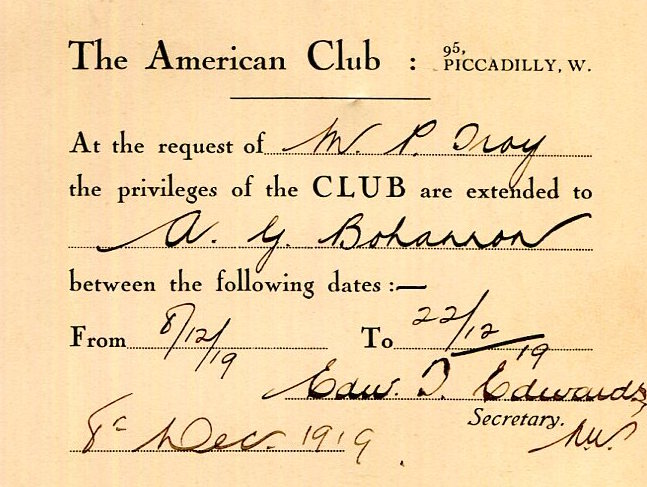 The American Club : 95, PICCADILLY, W.
At the request of M. P. Troy
the privileges of the CLUB are extended to
A. G. Bohannon
between the following dates :—
From 8/12/19 To 22/12/19
Edw. T. Edwards
Secretary.
8th Dec. 1919.